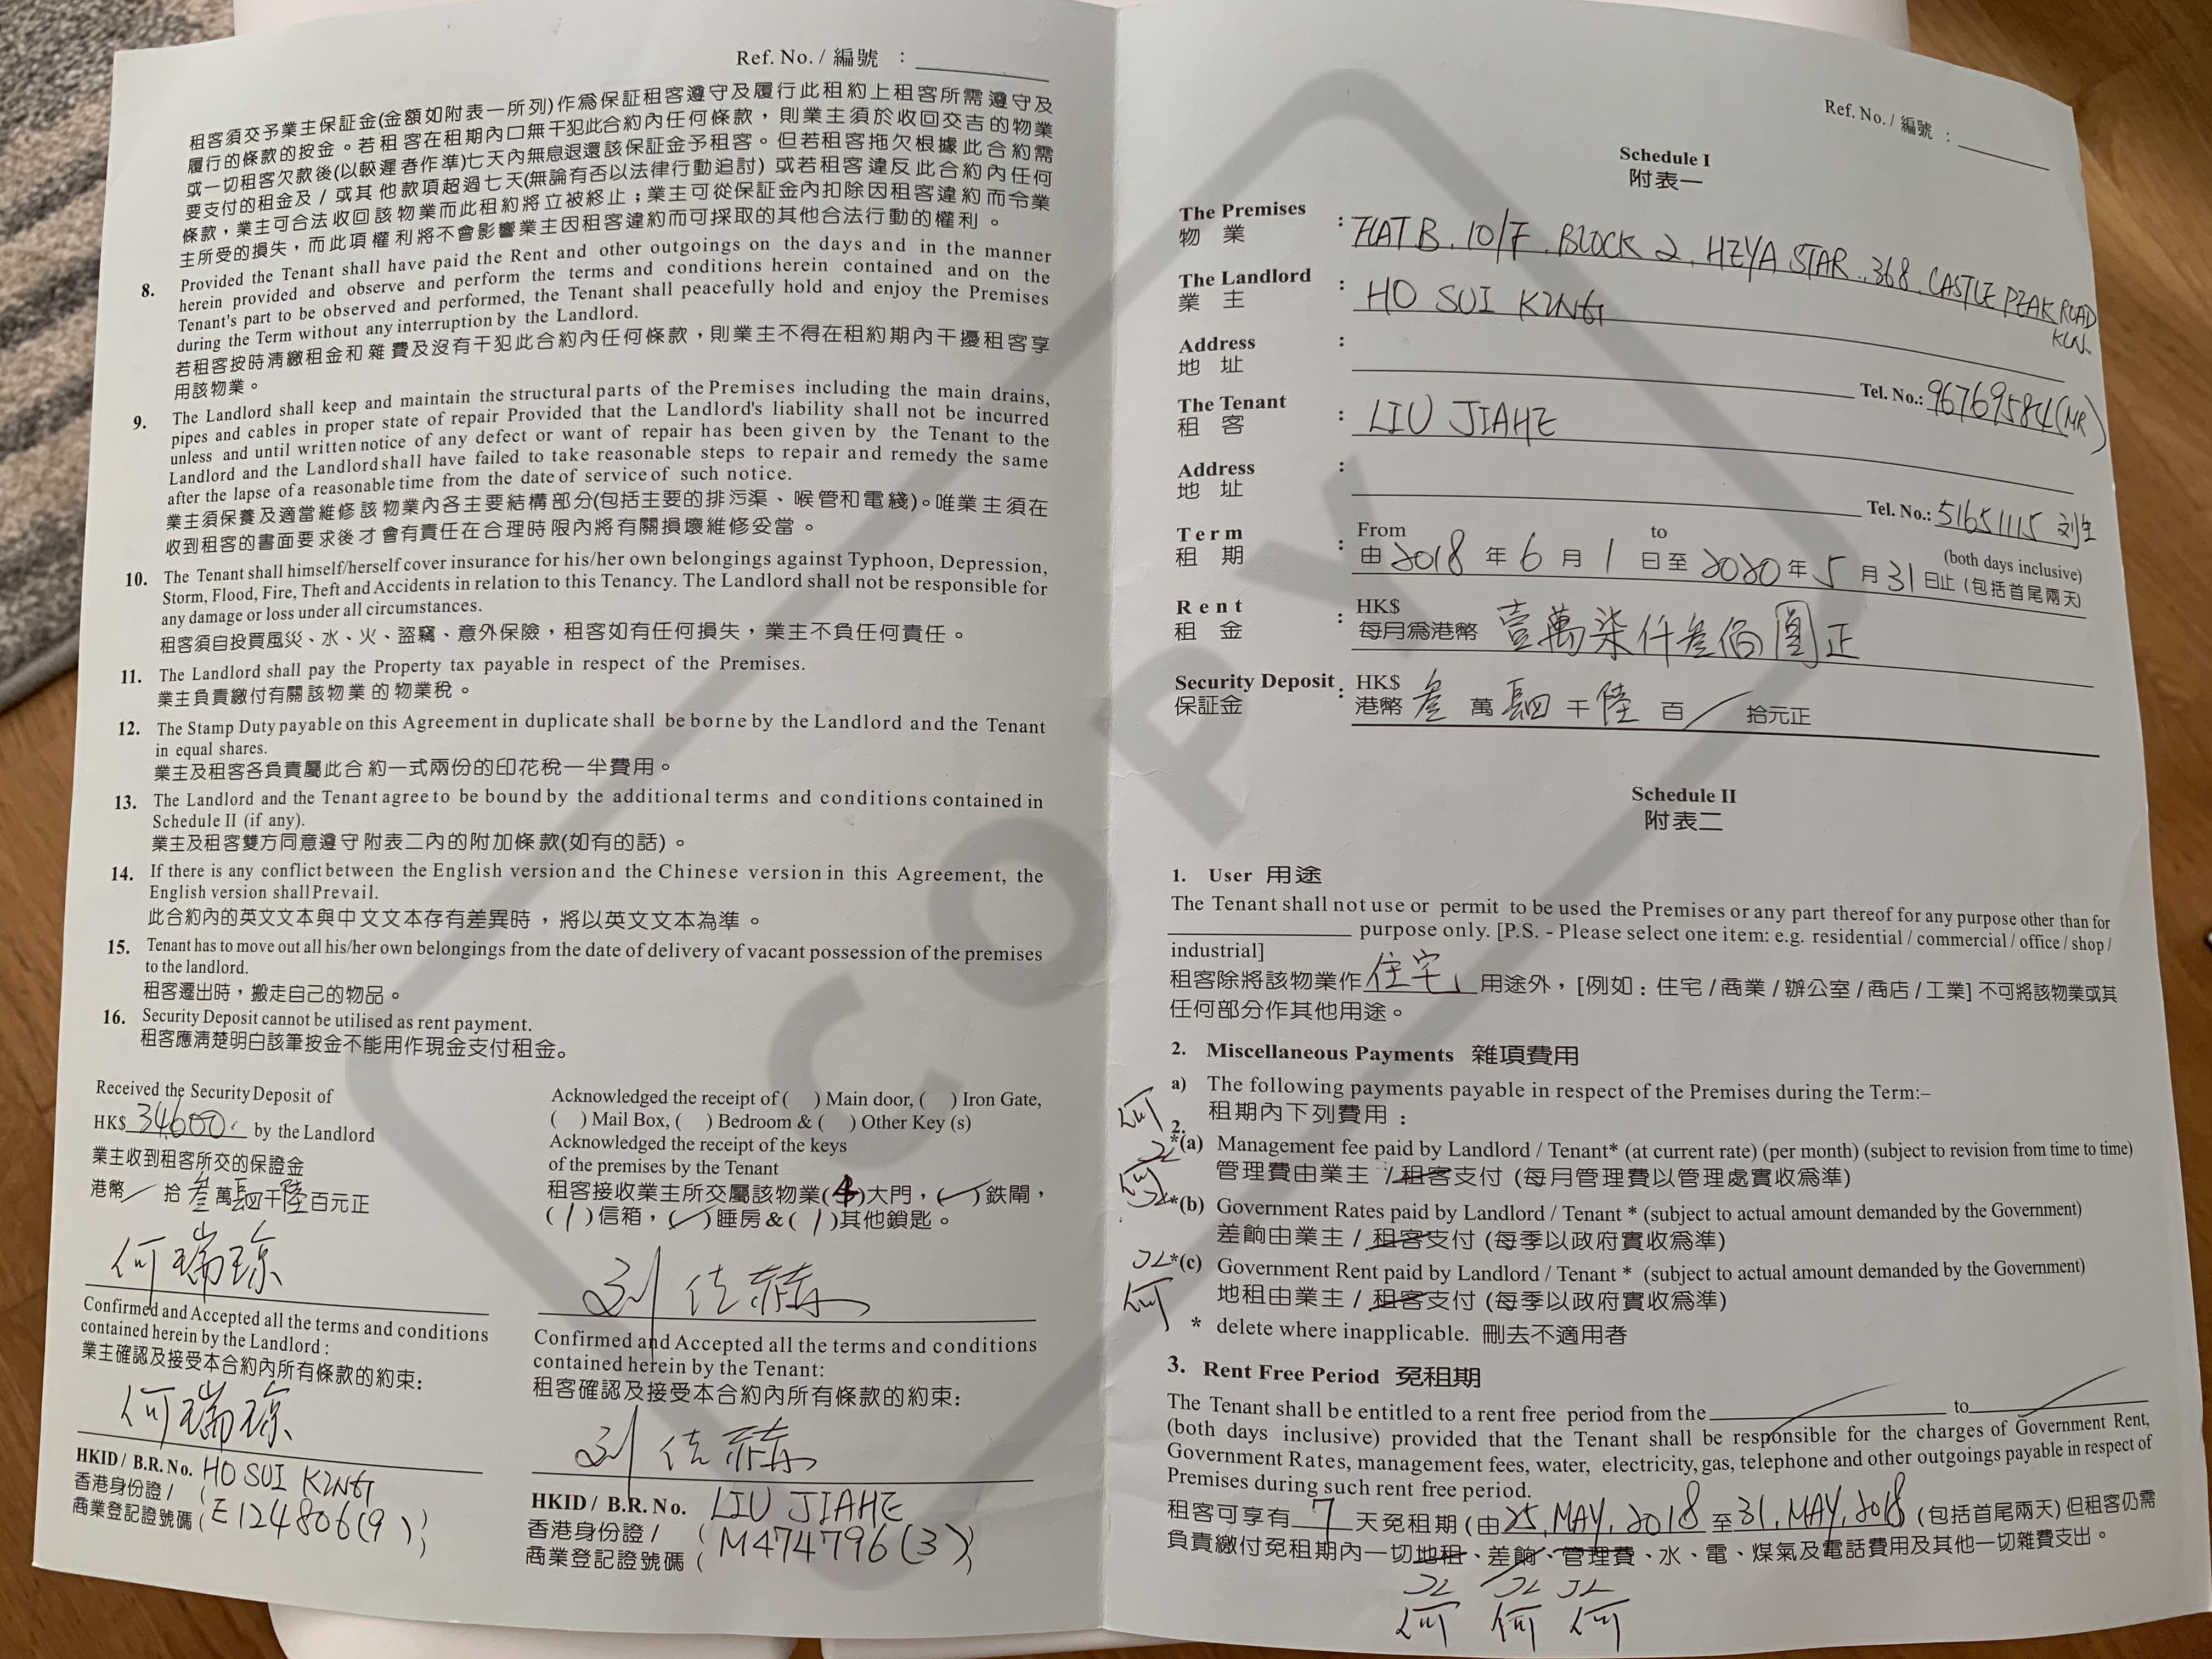 Ref. No. / 編號 :
租客須交予業主保証金(金額如附表一所列)作為保証租客遵守及履行此租約上租客所需遵守及
履行的條款的按金。若租客在租期內口無干犯此合約內任何條款，則業主須於收回交吉的物業
或一切租客欠款後(以較遲者作準)七天內無息退還該保証金予租客。但若租客拖欠根據此合約需
要支付的租金及 / 或其他款項超過七天(無論有否以法律行動追討) 或若租客違反此合約內任何
條款，業主可合法收回該物業而此租約將立被終止；業主可從保証金內扣除因租客違約而令業
主所受的損失，而此項權利將不會影響業主因租客違約而可採取的其他合法行動的權利。
8. Provided the Tenant shall have paid the Rent and other outgoings on the days and in the manner
herein provided and observe and perform the terms and conditions herein contained and on the
Tenant's part to be observed and performed, the Tenant shall peacefully hold and enjoy the Premises
during the Term without any interruption by the Landlord.
若租客按時清繳租金和雜費及沒有干犯此合約內任何條款，則業主不得在租約期內干擾租客享
用該物業。
9. The Landlord shall keep and maintain the structural parts of the Premises including the main drains,
pipes and cables in proper state of repair Provided that the Landlord's liability shall not be incurred
unless and until written notice of any defect or want of repair has been given by the Tenant to the
Landlord and the Landlord shall have failed to take reasonable steps to repair and remedy the same
after the lapse of a reasonable time from the date of service of such notice.
業主須保養及適當維修該物業內各主要結構部分(包括主要的排污渠、喉管和電綫)。唯業主須在
收到租客的書面要求後才會有責任在合理時限內將有關損壞維修妥當。
10. The Tenant shall himself/herself cover insurance for his/her own belongings against Typhoon, Depression,
Storm, Flood, Fire, Theft and Accidents in relation to this Tenancy. The Landlord shall not be responsible for
any damage or loss under all circumstances.
租客須自投買風災、水、火、盜竊、意外保險，租客如有任何損失，業主不負任何責任。
11. The Landlord shall pay the Property tax payable in respect of the Premises.
業主負責繳付有關該物業的物業稅。
12. The Stamp Duty payable on this Agreement in duplicate shall be borne by the Landlord and the Tenant
in equal shares.
業主及租客各負責屬此合約一式兩份的印花稅一半費用。
13. The Landlord and the Tenant agree to be bound by the additional terms and conditions contained in
Schedule II (if any).
業主及租客雙方同意遵守附表二內的附加條款(如有的話)。
14. If there is any conflict between the English version and the Chinese version in this Agreement, the
English version shall Prevail.
此合約內的英文文本與中文文本存有差異時，將以英文文本為準。
15. Tenant has to move out all his/her own belongings from the date of delivery of vacant possession of the premises
to the landlord.
租客遷出時，搬走自己的物品。
16. Security Deposit cannot be utilised as rent payment.
租客應清楚明白該筆按金不能用作現金支付租金。
Received the Security Deposit of
HK$ 34600 by the Landlord
業主收到租客所交的保證金
港幣 / 拾 叁 萬 四 千 陸 百元正
何瑞琼
Confirmed and Accepted all the terms and conditions
contained herein by the Landlord :
業主確認及接受本合約內所有條款的約束:
何瑞琼
HKID / B.R. No. HO SUI KING
香港身份證 /
商業登記證號碼 ( E124806(9) )
Acknowledged the receipt of ( ) Main door, ( ) Iron Gate,
( ) Mail Box, ( ) Bedroom & ( ) Other Key (s)
Acknowledged the receipt of the keys
of the premises by the Tenant
租客接收業主所交屬該物業(4)大門，( )鉄閘，
(1)信箱，( )睡房&(1)其他鎖匙。
刘佳赫
Confirmed and Accepted all the terms and conditions
contained herein by the Tenant:
租客確認及接受本合約內所有條款的約束:
刘佳赫
HKID / B.R. No. LIU JIAHE
香港身份證 /
商業登記證號碼 ( M474796(3) )
COPY
Ref. No. / 編號 :
Schedule I
附表一
The Premises : FLAT B. 10/F. BLOCK 2. HEYA STAR. 368. CASTLE PEAK ROAD
物業 KLN.
The Landlord : HO SUI KING
業主
Address :
地址
Tel. No.: 96769584(MR)
The Tenant : LIU JIAHE
租客
Address :
地址
Tel. No.: 51651115 刘生
Term : From to (both days inclusive)
租期 由 2018 年 6 月 1 日至 2020 年 5 月 31 日止 (包括首尾兩天)
Rent : HK$
租金 每月為港幣 壹萬柒仟叁佰圓正
Security Deposit : HK$
保証金 港幣 叁 萬 四 千 陸 百 / 拾元正
Schedule II
附表二
1. User 用途
The Tenant shall not use or permit to be used the Premises or any part thereof for any purpose other than for
purpose only. [P.S. - Please select one item: e.g. residential / commercial / office / shop /
industrial]
租客除將該物業作 住宅 用途外，[例如 : 住宅 / 商業 / 辦公室 / 商店 / 工業] 不可將該物業或其
任何部分作其他用途。
2. Miscellaneous Payments 雜項費用
a) The following payments payable in respect of the Premises during the Term:–
租期內下列費用 :
何
2.
JL *(a) Management fee paid by Landlord / Tenant* (at current rate) (per month) (subject to revision from time to time)
何 管理費由業主 / 租客支付 (每月管理費以管理處實收為準)
JL *(b) Government Rates paid by Landlord / Tenant * (subject to actual amount demanded by the Government)
差餉由業主 / 租客支付 (每季以政府實收為準)
JL *(c) Government Rent paid by Landlord / Tenant * (subject to actual amount demanded by the Government)
何 地租由業主 / 租客支付 (每季以政府實收為準)
* delete where inapplicable. 刪去不適用者
3. Rent Free Period 免租期
The Tenant shall be entitled to a rent free period from the to
(both days inclusive) provided that the Tenant shall be responsible for the charges of Government Rent,
Government Rates, management fees, water, electricity, gas, telephone and other outgoings payable in respect of
Premises during such rent free period.
租客可享有 7 天免租期 (由 25. MAY. 2018 至 31. MAY. 2018 (包括首尾兩天) 但租客仍需
負責繳付免租期內一切地租、差餉、管理費、水、電、煤氣及電話費用及其他一切雜費支出。
JL JL JL
何 何 何